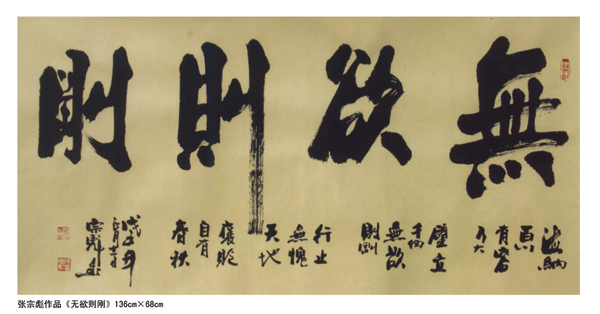 無欲則剛
海納
百川
有容
乃大
壁立
千仞
無欲
則剛
行止
無愧
天地
褒貶
自有
春秋
戊子年
宗彪書
张宗彪作品《无欲则刚》136cm×68cm